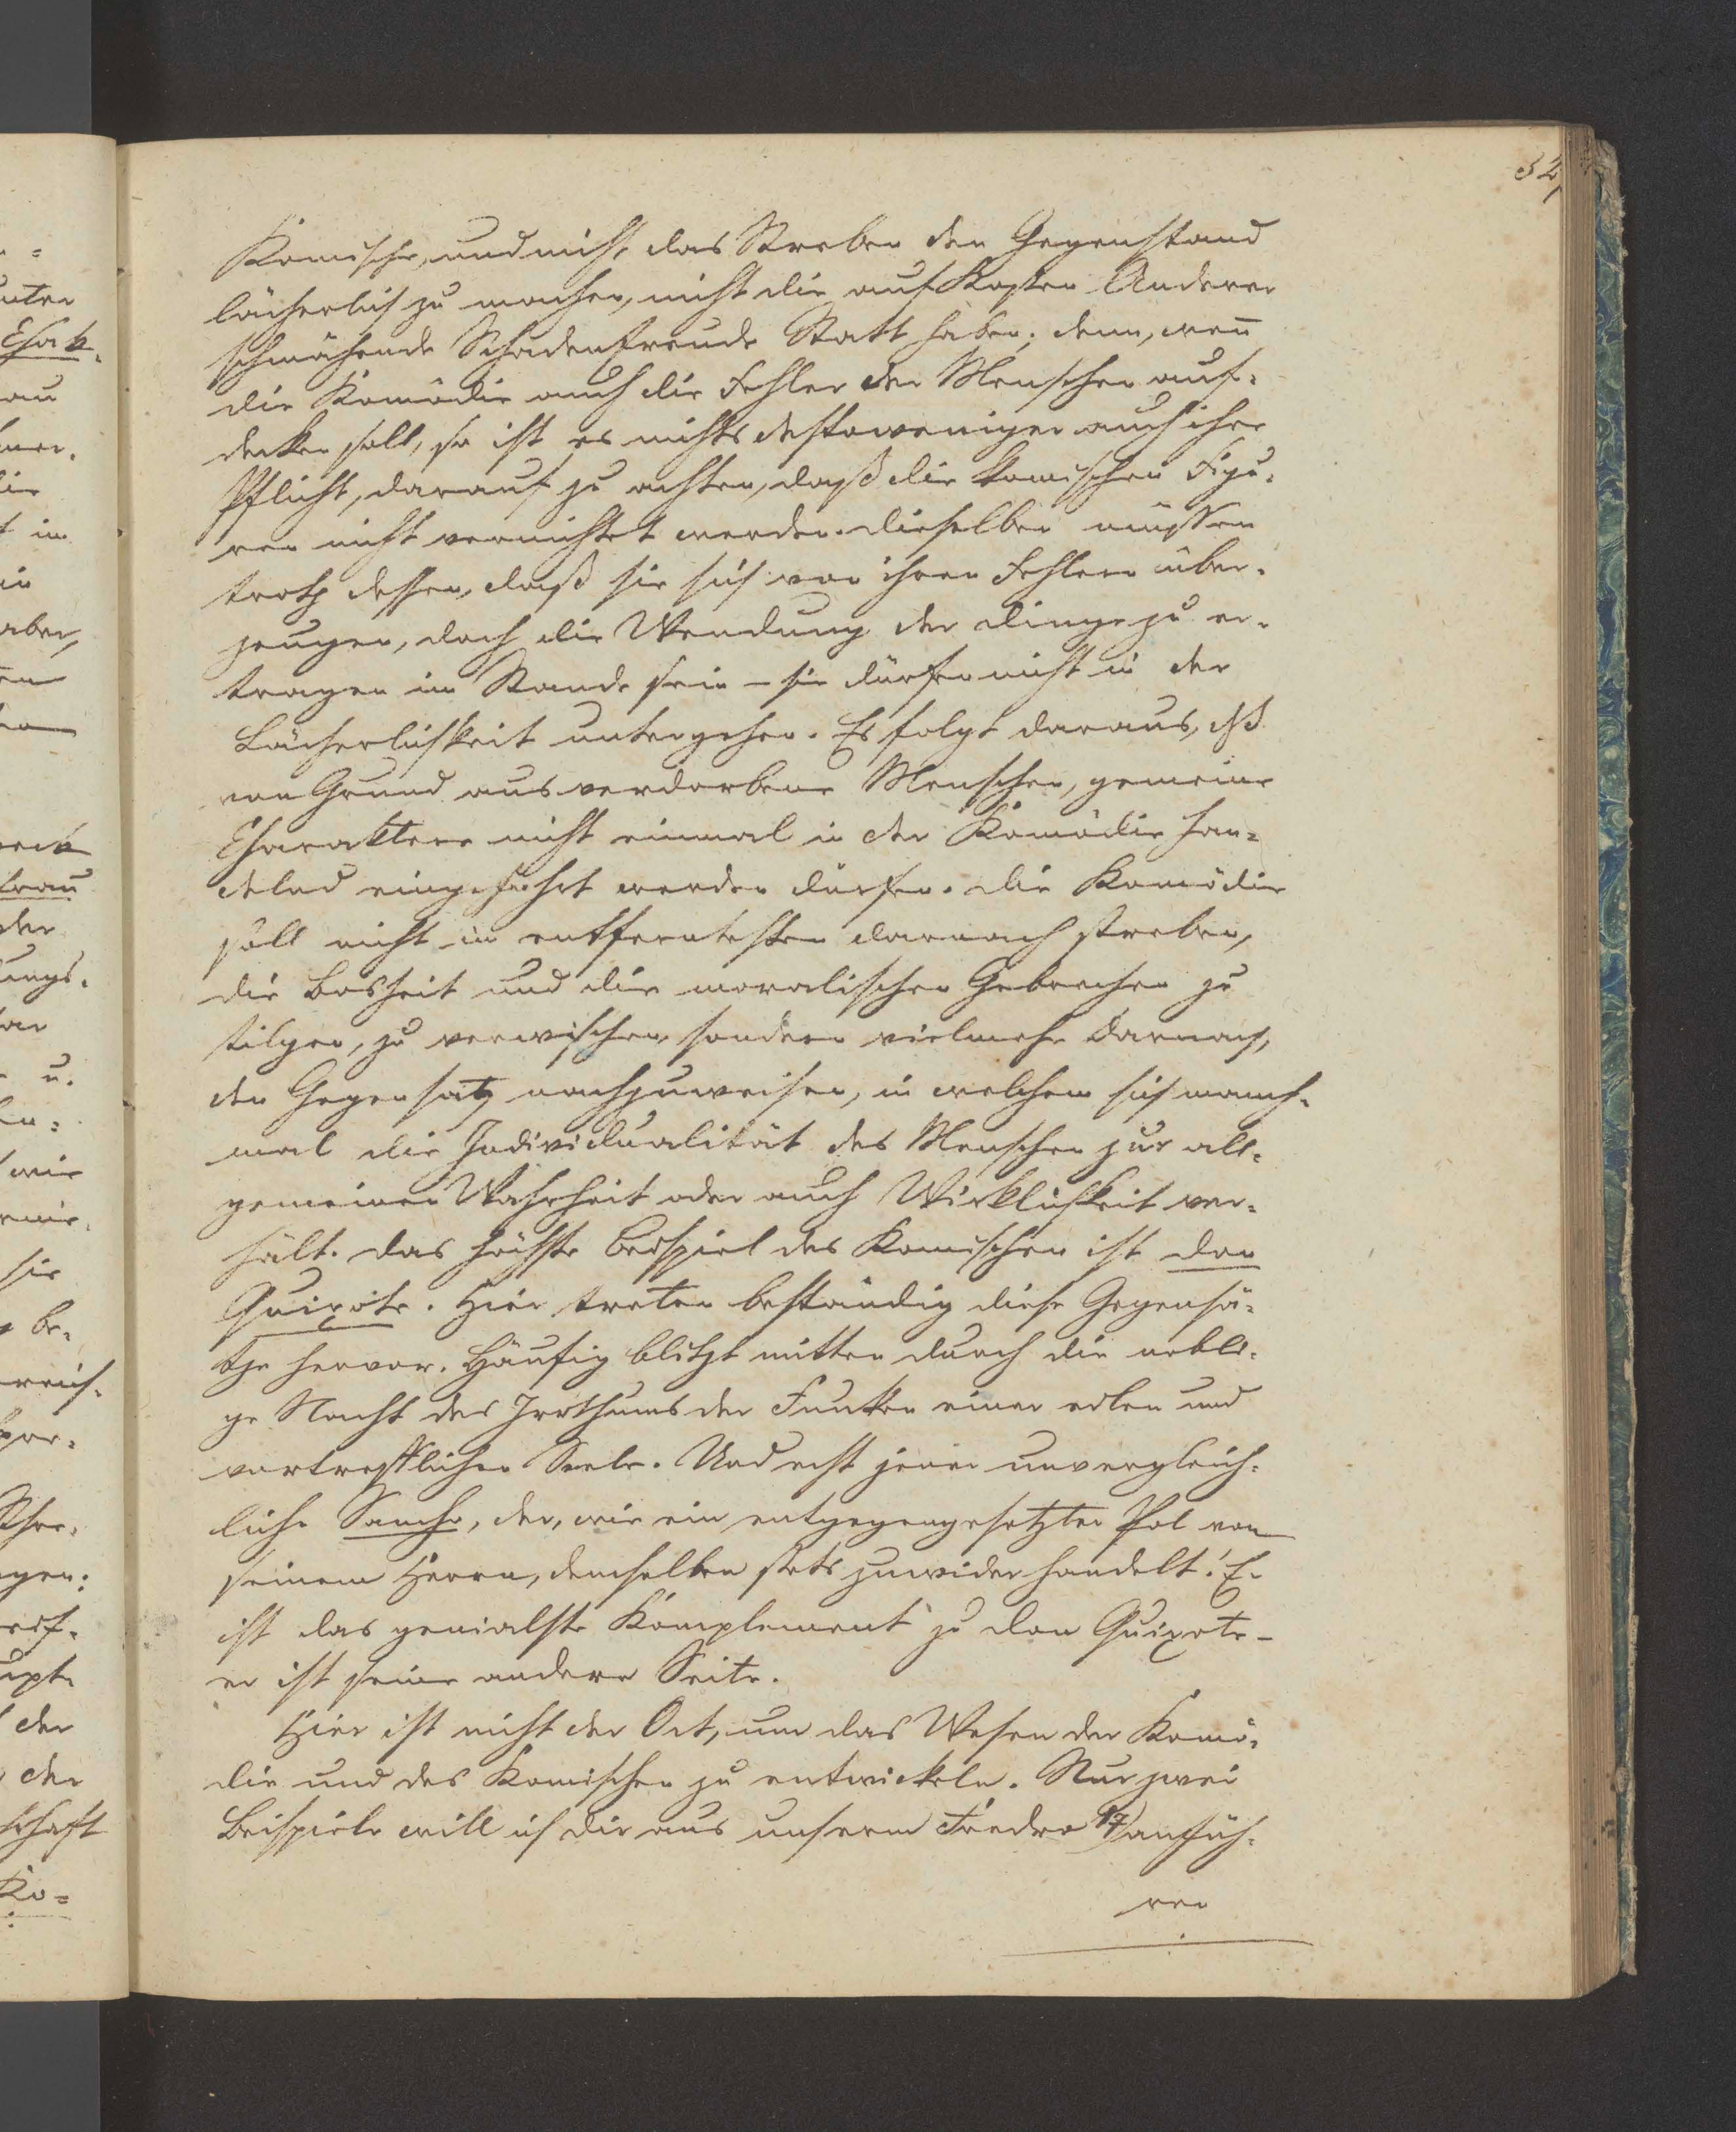 32,
Komische, und nicht das Streben den Gegenstand
lächerlich zu machen, nicht die auf Kosten Anderer
schmähende Schadenfreude Statt haben; denn, weñ
die Komödie auch die Fehler der Menschen auf-
decken soll, so ist es nichts destoweniger auch ihre
Pflicht, darauf zu achten, daß die komischen Figu-
ren nicht vernichtet werden. Dieselben müssen
trotz dessen, daß sie sich von ihren Fehlern über-
zeugen, doch die Wendung der Dinge zu er-
tragen im Stande sein – sie dürfen nicht in der
Lächerlichkeit untergehen. Es folgt daraus, dß
von Grund aus verdorbene Menschen, gemeine
Charaktere nicht einmal in der Komödie han-
delnd eingeführt werden dürfen. Die Komödie
soll nicht im entferntesten darnach streben,
die Bosheit und die moralischen Gebrechen zu
tilgen, zu verwischen, sondern vielmehr darnach,
den Gegensatz nachzuweisen, in welchem sich manch-
mal die Individualität des Menschen zur all-
gemeinen Wahrheit oder auch Wirklichkeit ver-
hält. Das höchste Beispiel des Komischen ist Don
Quixote. Hier treten beständig diese Gegensä-
tze hervor. Häufig blitzt mitten durch die nebli-
ge Nacht des Irrthums der Funken einer edlen und
vortrefflichen Seele. Und erst jener unvergleich-
liche Sancho, der, wie ein entgegengesetzter Pol von
seinem Herrn, demselben stets zuwider handelt! Er
ist das genialste Komplement zu Don Quixote –
er ist seine andere Seite.
Hier ist nicht der Ort, um das Wesen der Komö-
die und des Komischen zu entwickeln. Nur zwei
Beispiele will ich dir aus unserm Fredro 17) anfüh-
ren